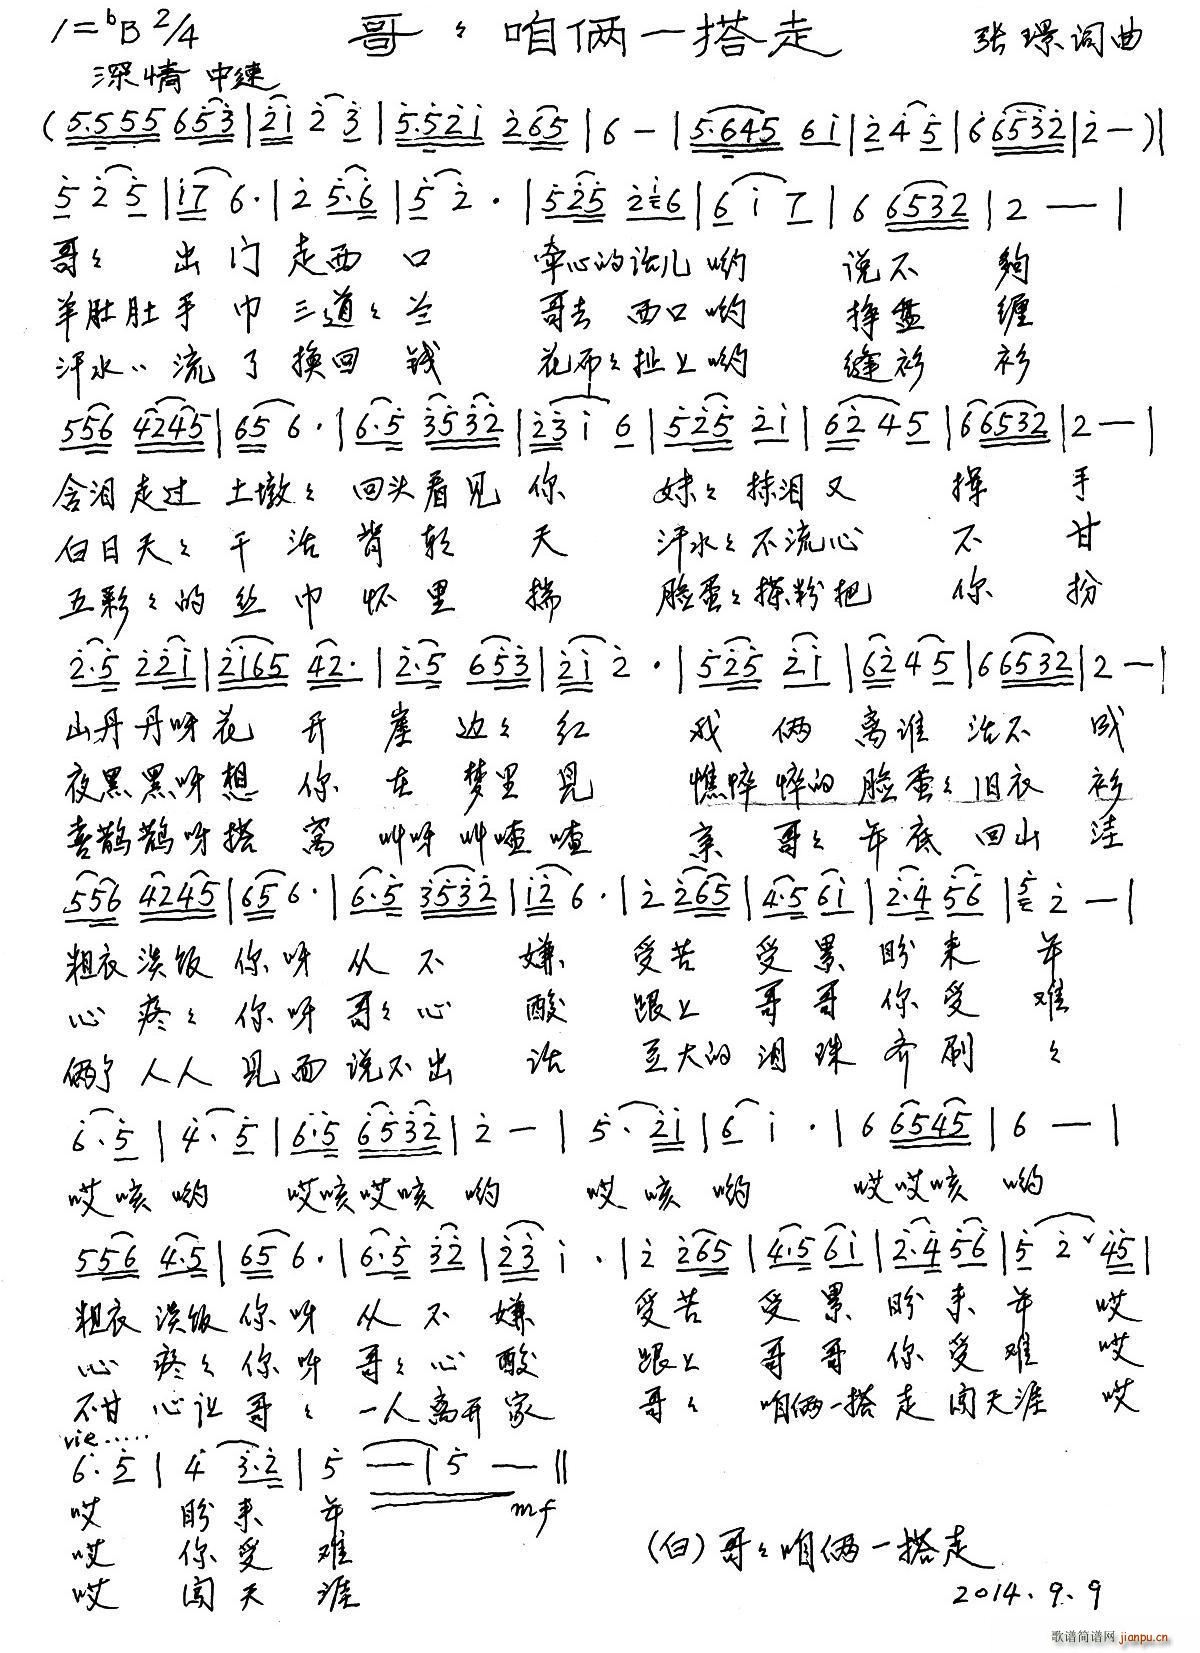 1=ᵇB 2/4 哥々咱俩一搭走 张璟词曲
深情 中速
(5.555 653|21 2 3|5.521 265|6 -|5.645 61|2 4 5|6 6532|2 -)|
5 2 5|17 6.|2 5.6|5 2.|525 216|6 1 7|6 6532|2 -|
哥々 出门走西口 牵心的话儿哟 说不够
羊肚肚手巾三道々兰 哥去西口哟 挣盘缠
汗水〃流了换回钱 花布々扯上哟 缝衫衫
556 4245|65 6.|6.5 3532|23 1 6|525 21|62 45|6 6532|2 -|
含泪走过土墩々回头看见你 妹々抹泪又挥手
白日天々干活背朝天 汗水々不流心不甘
五彩々的丝巾怀里揣 脸蛋々搽粉把你扮
2.5 221|2165 42.|2.5 653|21 2.|525 21|62 45|6 6532|2 -|
山丹丹呀花开崖边々红 我俩离谁活不成
夜黑黑呀想你在梦里见 憔悴悴的脸蛋々旧衣衫
喜鹊鹊呀搭窝叫呀叫喳喳 亲哥々年底回山洼
556 4245|65 6.|6.5 3532|12 6.|2 265|4.5 61|2.4 56|5 2 -|
粗衣淡饭你呀从不嫌 受苦受累盼来年
心疼々你呀哥々心酸 跟上哥哥你受难
俩个人人见面说不出话 豆大的泪珠齐刷々
6.5|4.5|6.5 6532|2 -|5.21|6 1.|6 6545|6 -|
哎咳哟 哎咳哎咳哟 哎咳哟 哎哎咳哟
556 4.5|65 6.|6.5 32|23 1.|2 265|4.5 61|2.4 56|5 2ᵛ45|
粗衣淡饭你呀从不嫌 受苦受累盼来年 哎
心疼々你呀哥々心酸 跟上哥哥你受难 哎
不甘心让哥々一人离开家 哥々咱俩一搭走闯天涯 哎
rie......
6.5|4 3.2|5 -|5 -‖
mf
哎 盼来年
哎 你受难
哎 闯天涯
(白)哥々咱俩一搭走
2014.9.9
歌谱简谱网
jianpu.cn